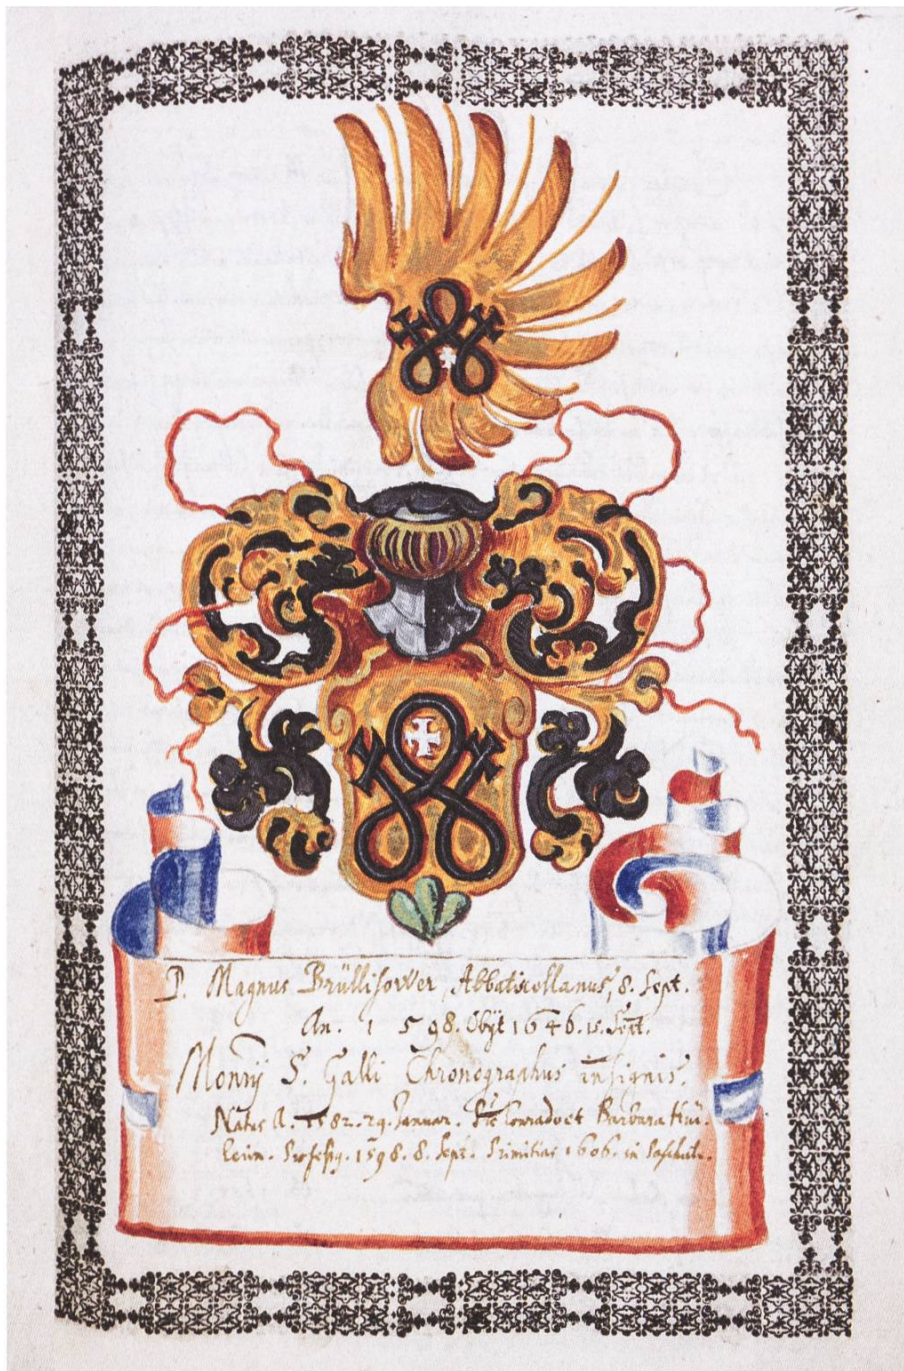 P. Magnus Brülliſower, Abbatiscellanus, 8. Sept.
An. 1598. Obÿt 1646. 15. Sept.
Monrÿ S. Galli Chronographus insignis.
Natus A. 1582. 29. Januar. Conrado et Barbara
1598. 8. Sept. Primitias 1606. in Paschate.